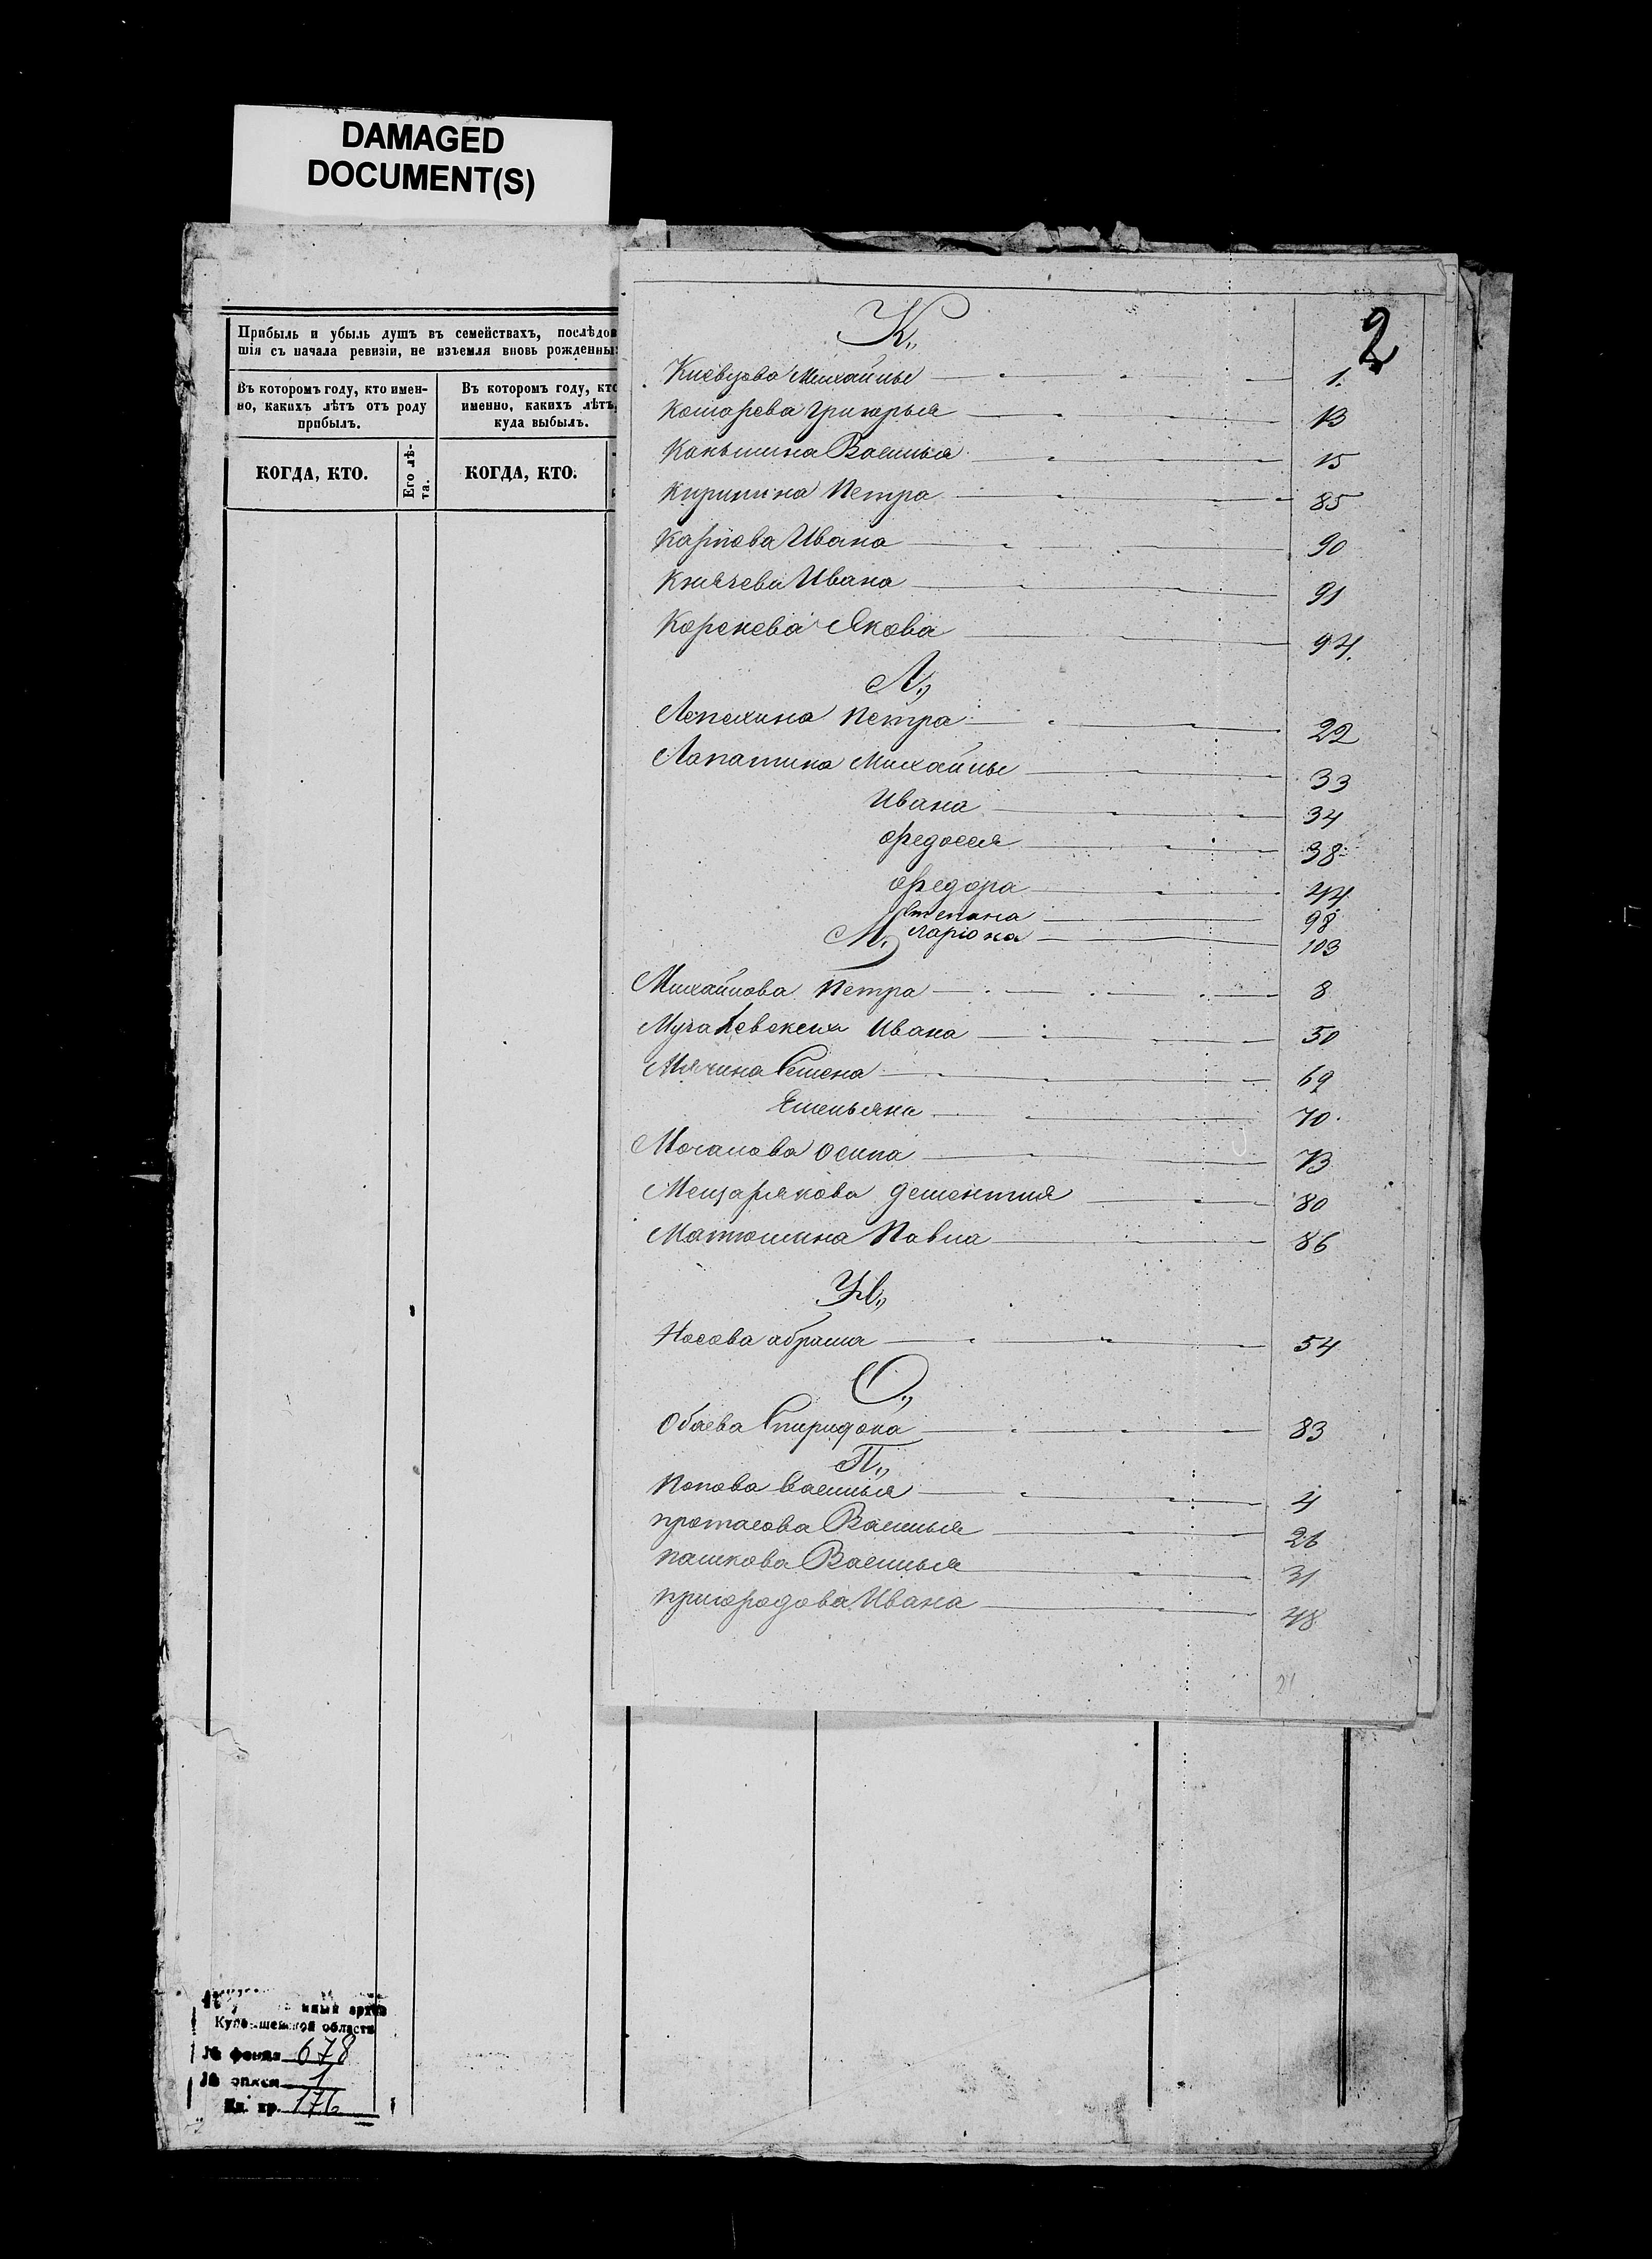 DAMAGED
DOCUMENT(S)
Прибыль и убыль душъ въ семействахъ, послѣдов
шія съ начала ревизіи, не изъемля вновь рожденны
Въ которомъ году, кто имен-
но, какихъ лѣтъ отъ роду
прибылъ.
Въ которомъ году, кто
именно, какихъ лѣтъ,
куда выбылъ.
КОГДА, КТО.
Его лѣ-
та.
КОГДА, КТО.
2
К.,
Киевцова Михайлы 1.
Комарева Григорья 13
Каньшина Василья 15
Кирилина Петра 85
Карпова Ивана 90
Князева Ивана 91
Коренева Якова 94.
Л.,
Лепехина Петра 22
Лопатина Михайлы 33
Ивана 34
Федосея 38
Федора 44
Степана 98
Ларіона 103
М.,
Михайлова Петра 8
Ивана 50
Мячина Семена 69
Емельяна 70.
Мочалова Осипа 73
Мещарякова Дементия 80
Матюшина Павла 86
Н.,
Носова Абрама 54
О.,
Обаева Спиридона 83
П.,
Попова Василья 4
Протасова Василья 26
Пашкова Василья 31
Пригородова Ивана 48
21
архив
Куйбышевской области
№ фонда 678
№ описи 1
Ед. хр. 176